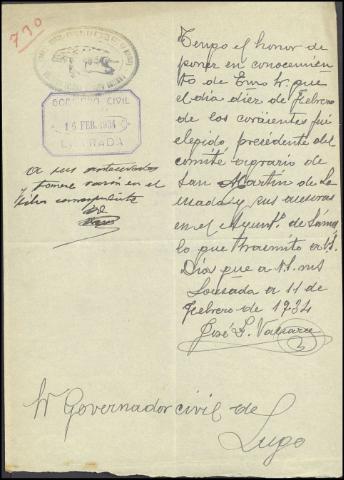 770
GOBIERNO CIVIL
16 FEB. 1934
ENTRADA
A sus antecedentes
y tomese razón en el
libro correspondiente
Tengo el honor de
poner en conocimien
to de Emo Sr. que
el día diez de Febrero
de los corrientes fui
elegido presidente del
comité agrario de
San Martín de Lo
usada y sus asesoras
en el Ayuntº. de Samos
lo que trasmito a V.
Dios que a V. ms
Lousada a 11 de
Febrero de 1934
José L.
Sr Governador civil de
Lugo